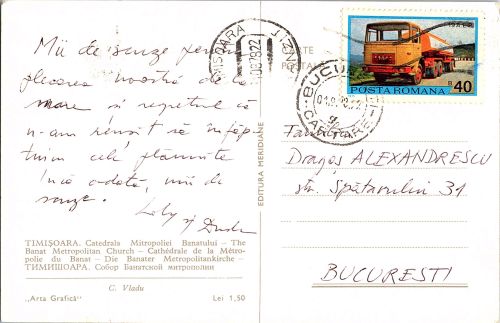 Mii de scuze pentru
plecarea noastră de la
mare și regretul că
n-am reușit să înfăp
tuim cele plănuite
încă odată, mii de
scuze.
TIMIȘOARA. Catedrala Mitropoliei Banatului — The
Banat Metropolitan Church — Cathédrale de la Métro-
polie du Banat — Die Banater Metropolitankirche —
ТИМИШОАРА. Собор Банатской митрополии
C. Vladu
„Arta Grafică" Lei 1,50
EDITURA MERIDIANE
TIMIȘOARA
CARTE
POSTALĂ
BUCUREȘTI
CARTARE
POSTA ROMANA B 40
Dragoș ALEXANDRESCU
str. Spătarului 31
BUCUREȘTI